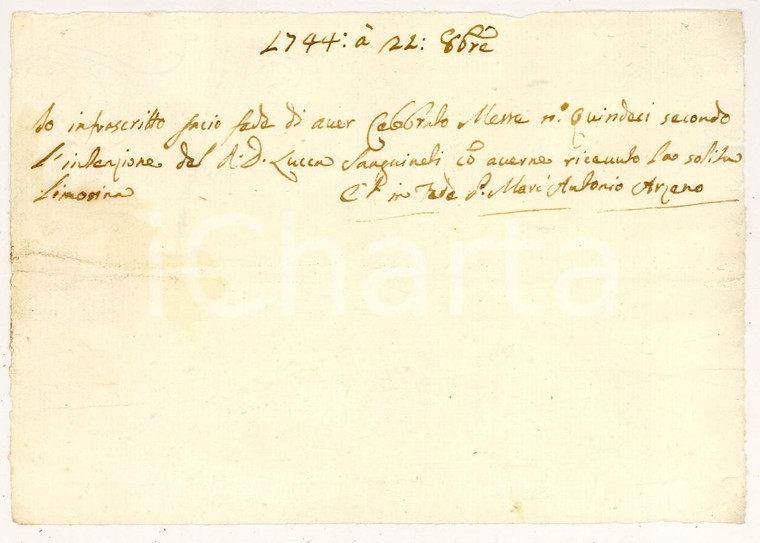 1744: à 22: 8bre
Io infrascritto facio fede di aver Celebrato Messe n.º Quindeci secondo
l'intenzione del R. D. Lucca Sanguineti cõ averne ricevuto la solita
limosina E p in fede P. Marc' Antonio Arzeno
iCharta